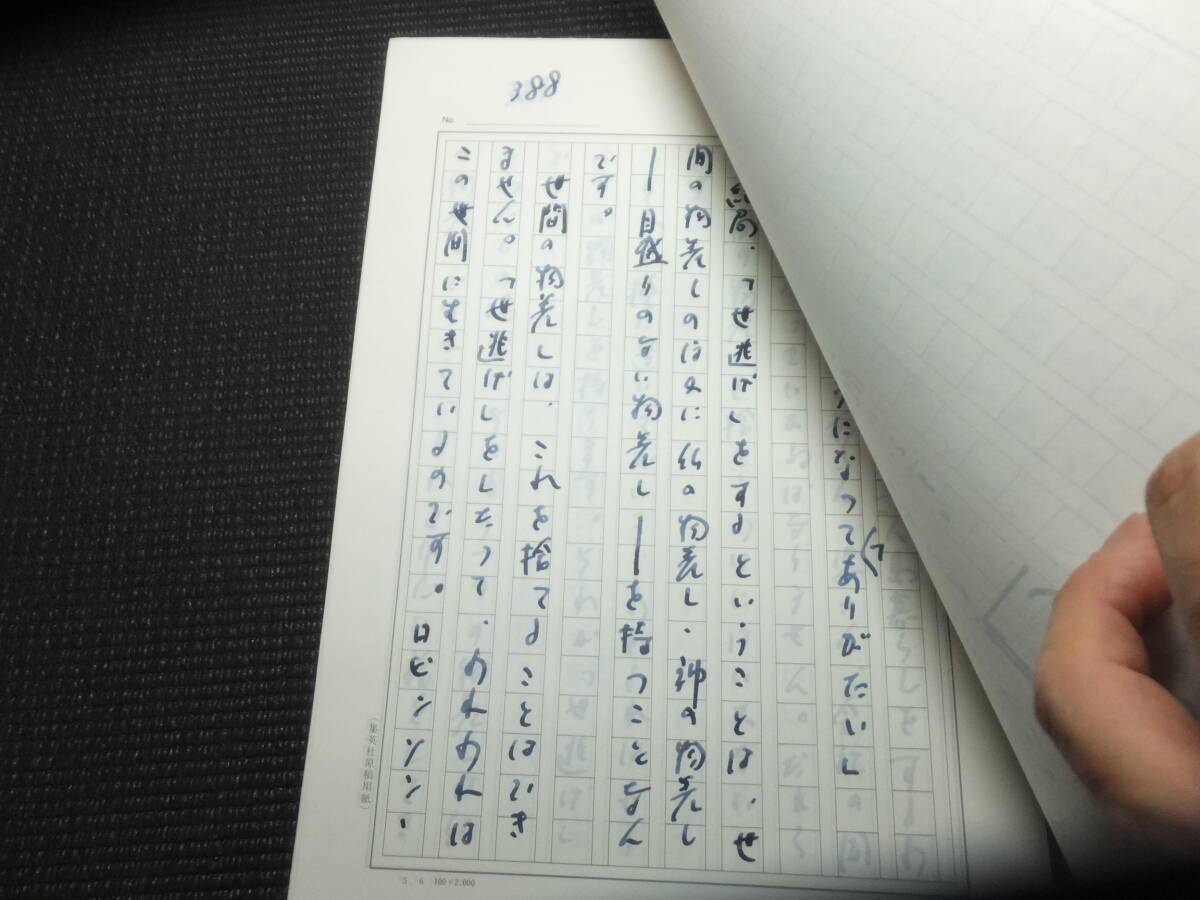 388
No.
になってありがたいし
結局、「世逃げ」をするということは、世
間の物差しのほかに仏の物差し・神の物差し
―目盛りのない物差し―を持つことなん
です。
世間の物差しは、これを捨てることはでき
ません。「世逃げ」をしたって、われわれは
この世間に生きているのです。ロビンソン・
（集英社原稿用紙）
100×2.000